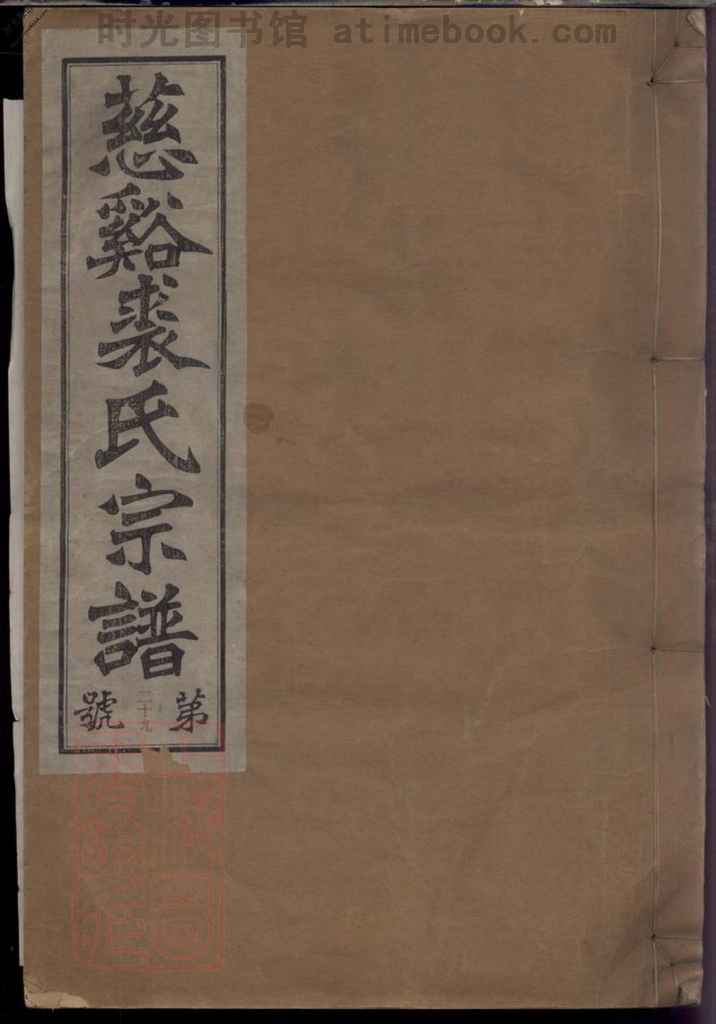 时光图书馆 atimebook.com
慈谿裘氏宗譜
第二十九號